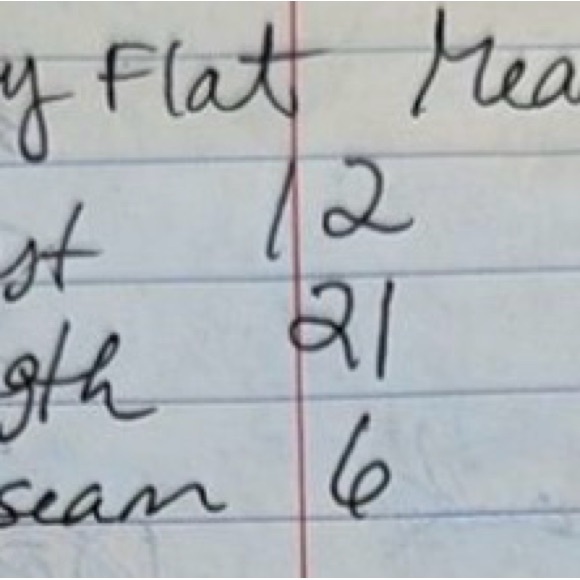 y Flat Mea
st 12
gth 21
seam 6